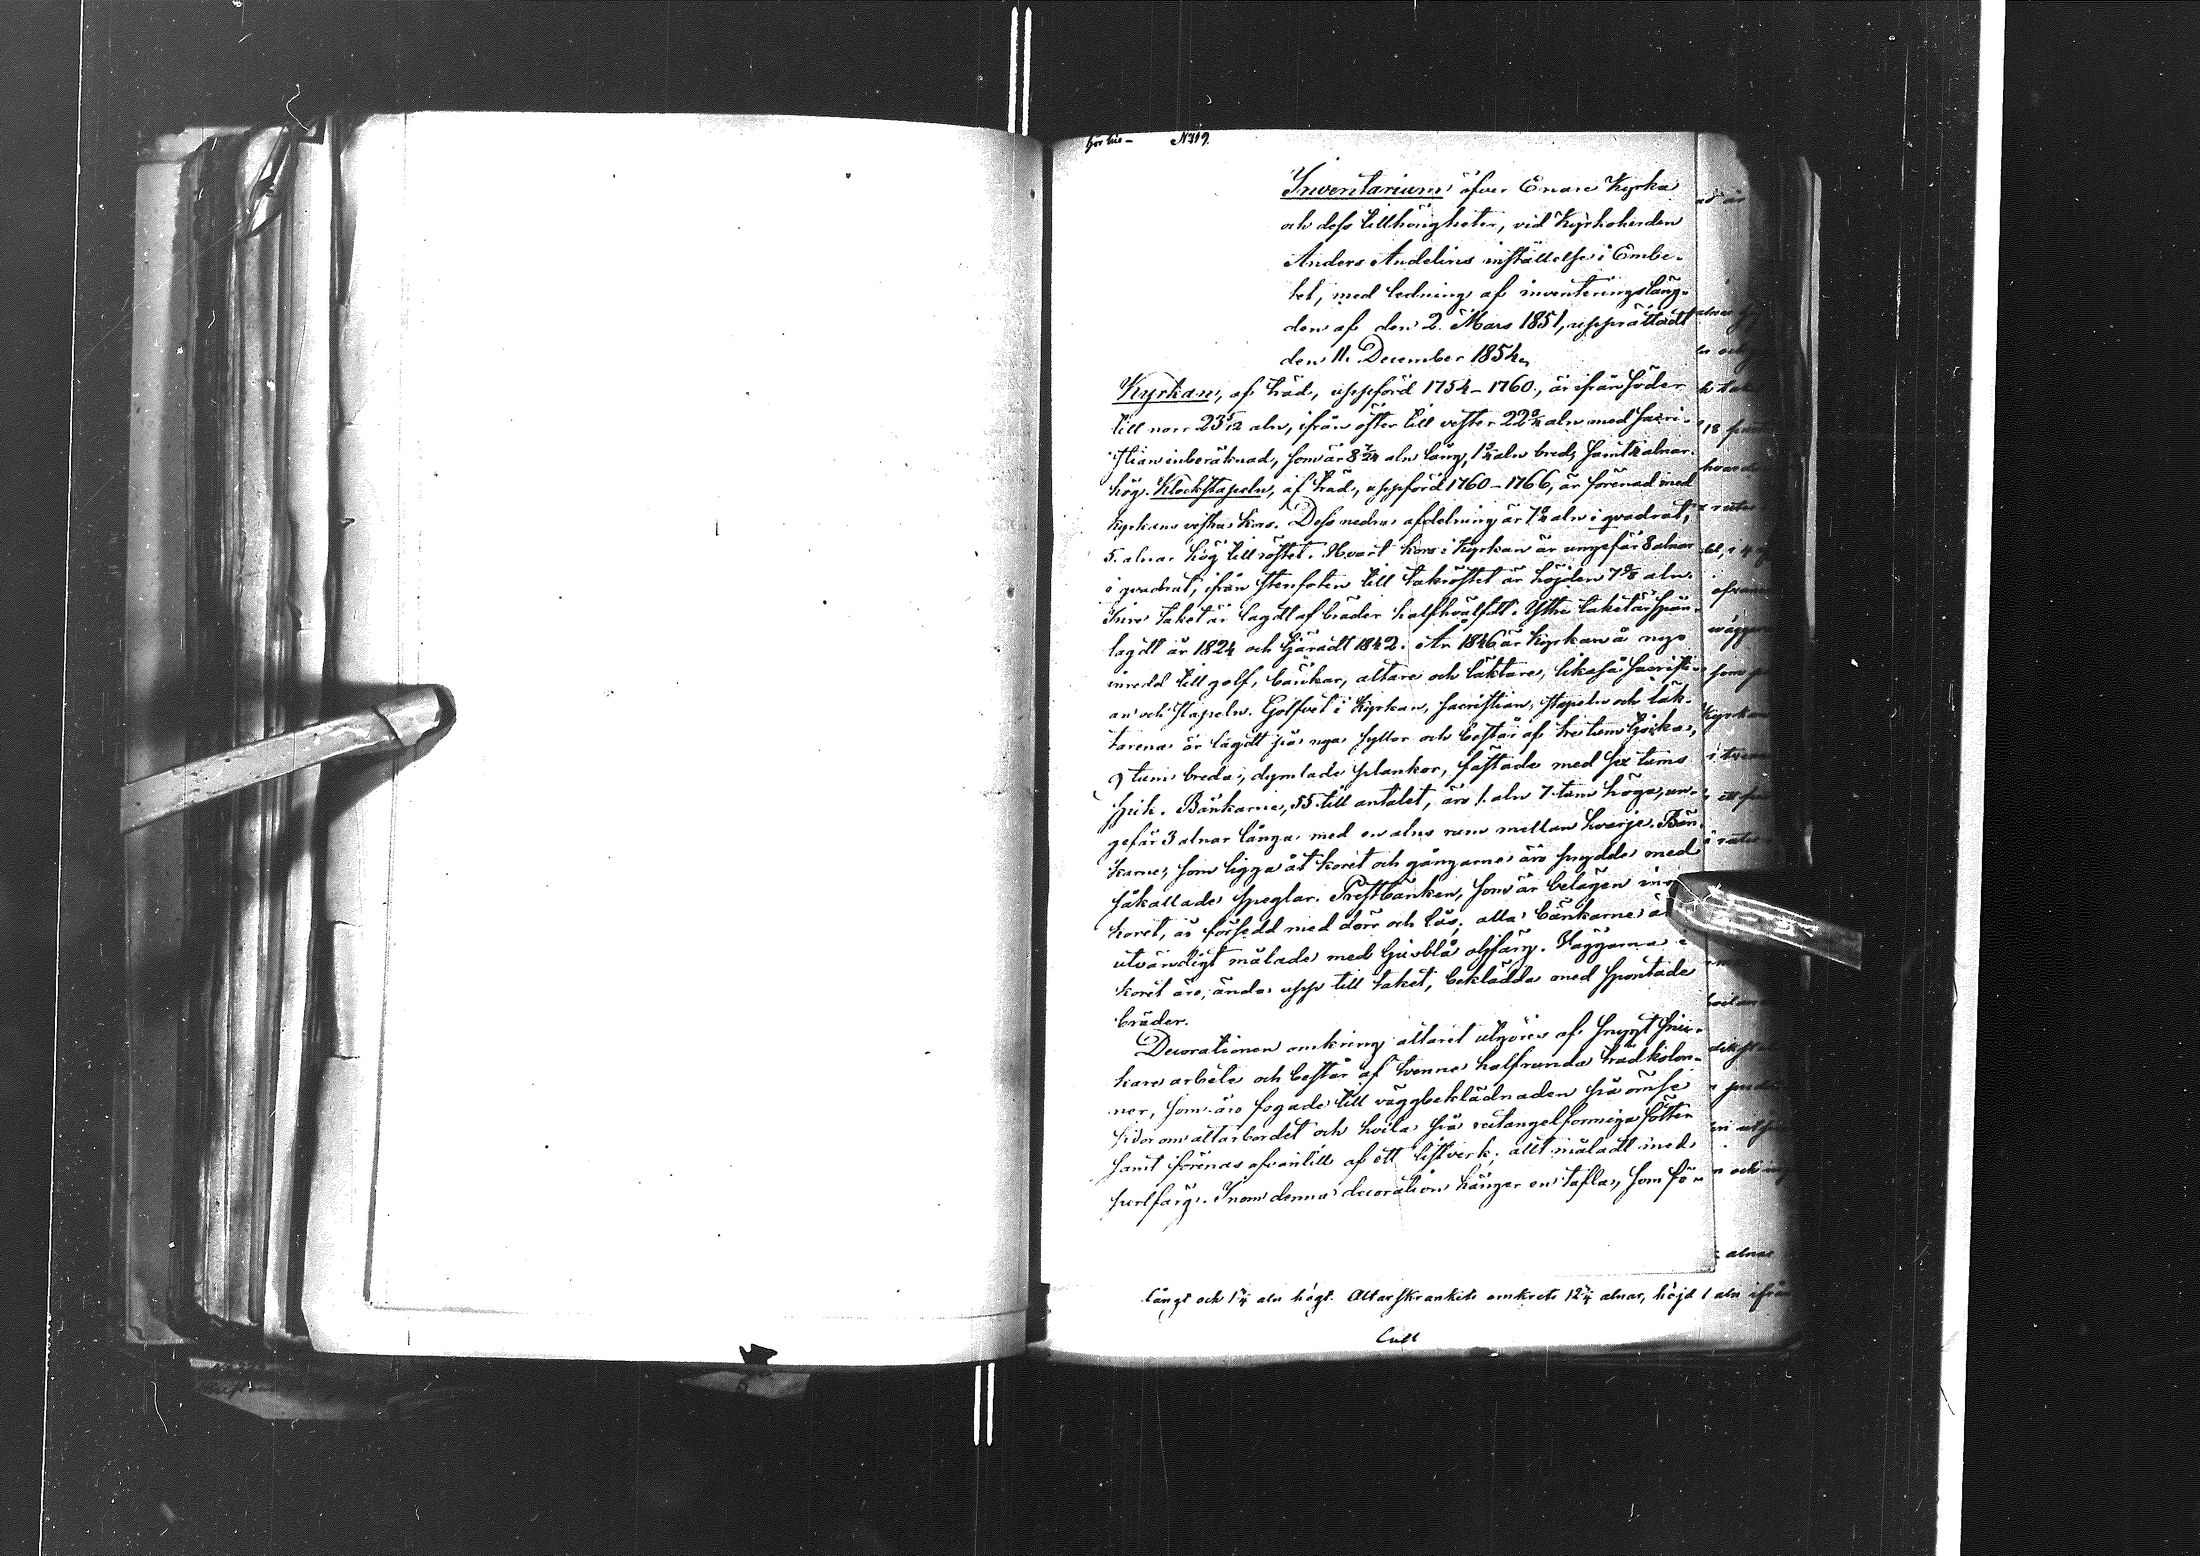 N:19.
Inventarium öfver Enare Kyrka
och dess tillhörigheter, vid Kyrkoherden
Anders Andelins inställelse i Embe-
tet, med ledning af inventeringsläng-
den af den 2. Mars 1851, upprättadt
den 11. December 1854.
Kyrkan, af träd, uppförd 1754-1760, är ifrån söder
till norr 23 5/12 aln, ifrån öster till vester 22 aln med sacri-
stian inberäknad, som är 8 7/24 aln lång, aln bred, samt alnar
hög. Klockstapeln, af träd, uppförd 1760-1766, är förenad med
Kyrkans vestra kors. Dess nedra afdelning är aln i qvadrat,
5. alnar hög till röstet. Hvart kors i Kyrkan är ungefär 8 alnar
i qvadrat, ifrån stenfoten till takröstet är höjden 7 aln.
Inre taket är lagdt af bräder halfhvälfdt. Yttre taket är spån-
lagdt år 1824 och tjäradt 1842. År 1846 är Kyrkan å nyo
inredd till golf, bänkar, altare och läktare, likaså sacristi-
an och stapeln. Golfvet i Kyrkan, sacristian, stapeln och läk-
tarena är lagdt på nya syllor och består af tre tum tjocka,
9 tum breda, dymlade plankor, fästade med sex tums
spik. Bänkarne, 55 till antalet, äro 1. aln 7 tum höga, un-
gefär 3 alnar långa med en alns rum mellan hvarje. Bän-
karne, som ligga åt koret och gångarne äro prydda med
såkallade speglar. Prestbänken, som är belägen in
koret, är försedd med dörr och lås; alla bänkarne ä
utvändigt målade med ljusblå oljfärg. Väggarna i
koret äro, ända upp till taket, beklädda med spontade
bräder.
Decorationen omkring altaret utgöres af snyggt snic-
kare arbete och består af tvenne halfrunda trädkolon-
ner, som äro fogade till väggbeklädnaden på ömse
sidor om altarbordet och hvila på rectangelformiga fötter
samt förenas ofvantill af ett listverk; allt måladt med
perlfärg. Inom denna decoration hänger en tafla, som fö-
långt och 1 1/4 aln högt. Altarskrankets omkrets 12 1/4 alnar, höjd 1 aln ifrån